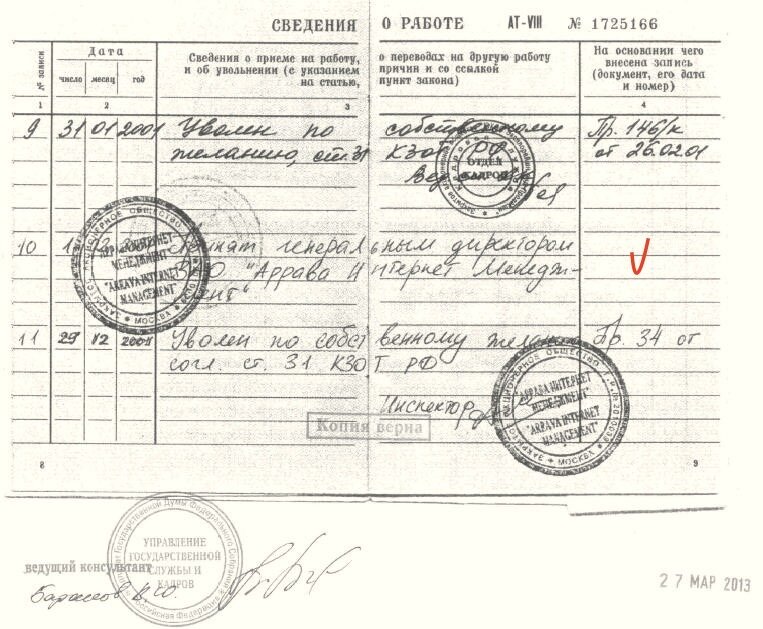 СВЕДЕНИЯ О РАБОТЕ AT-VIII № 1725166
№ записи
Дата
число месяц год
Сведения о приеме на работу, о переводах на другую работу
и об увольнении (с указанием причин и со ссылкой
на статью, пункт закона)
На основании чего
внесена запись
(документ, его дата
и номер)
1 2 3 4
9 31 01 2001 Уволен по собственному Пр. 146/к
желанию, ст. 31 КЗОТ РФ от 26.02.01
ОТДЕЛ
КАДРОВ
10 Принят генеральным директором
ЗАО "Аррава Интернет Менедж-
мент"
ЗАКРЫТОЕ АКЦИОНЕРНОЕ ОБЩЕСТВО
"АРРАВА ИНТЕРНЕТ
МЕНЕДЖМЕНТ"
"ARRAVA INTERNET
MANAGEMENT"
МОСКВА
11 29 12 2001 Уволен по собственному желан Пр. 34 от
согл. ст. 31 КЗОТ РФ
Инспектор
Копия верна
ЗАКРЫТОЕ АКЦИОНЕРНОЕ ОБЩЕСТВО
"АРРАВА ИНТЕРНЕТ
МЕНЕДЖМЕНТ"
"ARRAVA INTERNET
MANAGEMENT"
МОСКВА
8 9
Государственной Думы Федерального Собрания Российской Федерации
УПРАВЛЕНИЕ
ГОСУДАРСТВЕННОЙ
СЛУЖБЫ И
КАДРОВ
ведущий консультант
27 МАР 2013